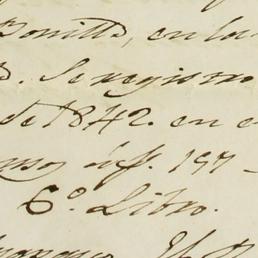 Bonilla, en la
Se registro
de 1842. en e
inf. 197
6.º Libro.